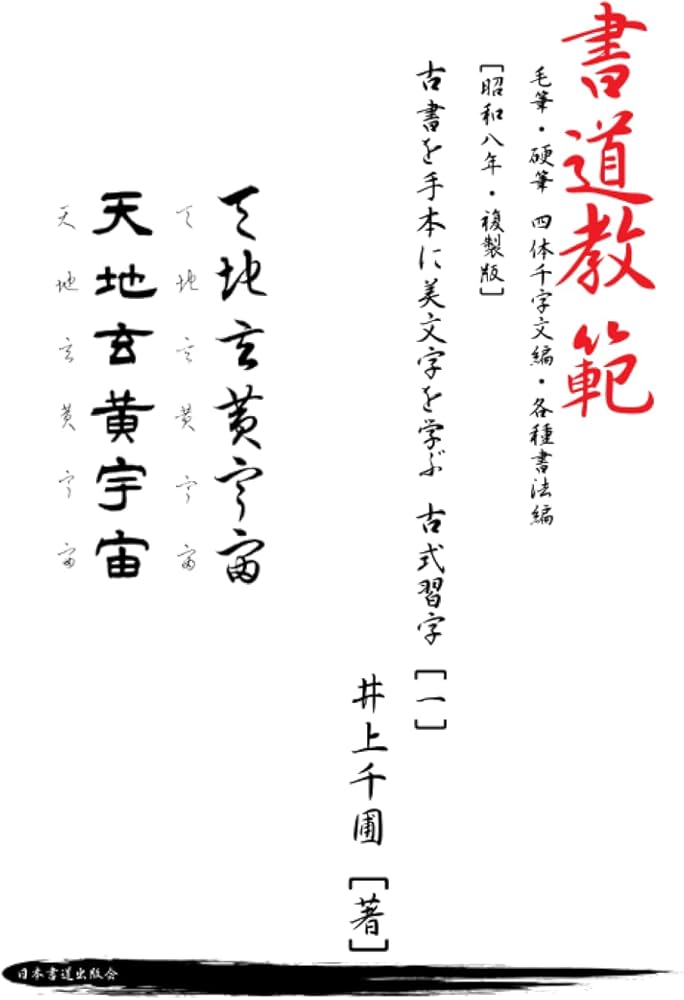 書道教範
毛筆・硬筆 四体千字文編・各種書法編
[昭和八年・複製版]
古書を手本に美文字を学ぶ 古式習字[一]
井上千圃[著]
天地玄黄宇宙
天地玄黄宇宙
天地玄黄宇宙
天地玄黄宇宙
日本書道出版会